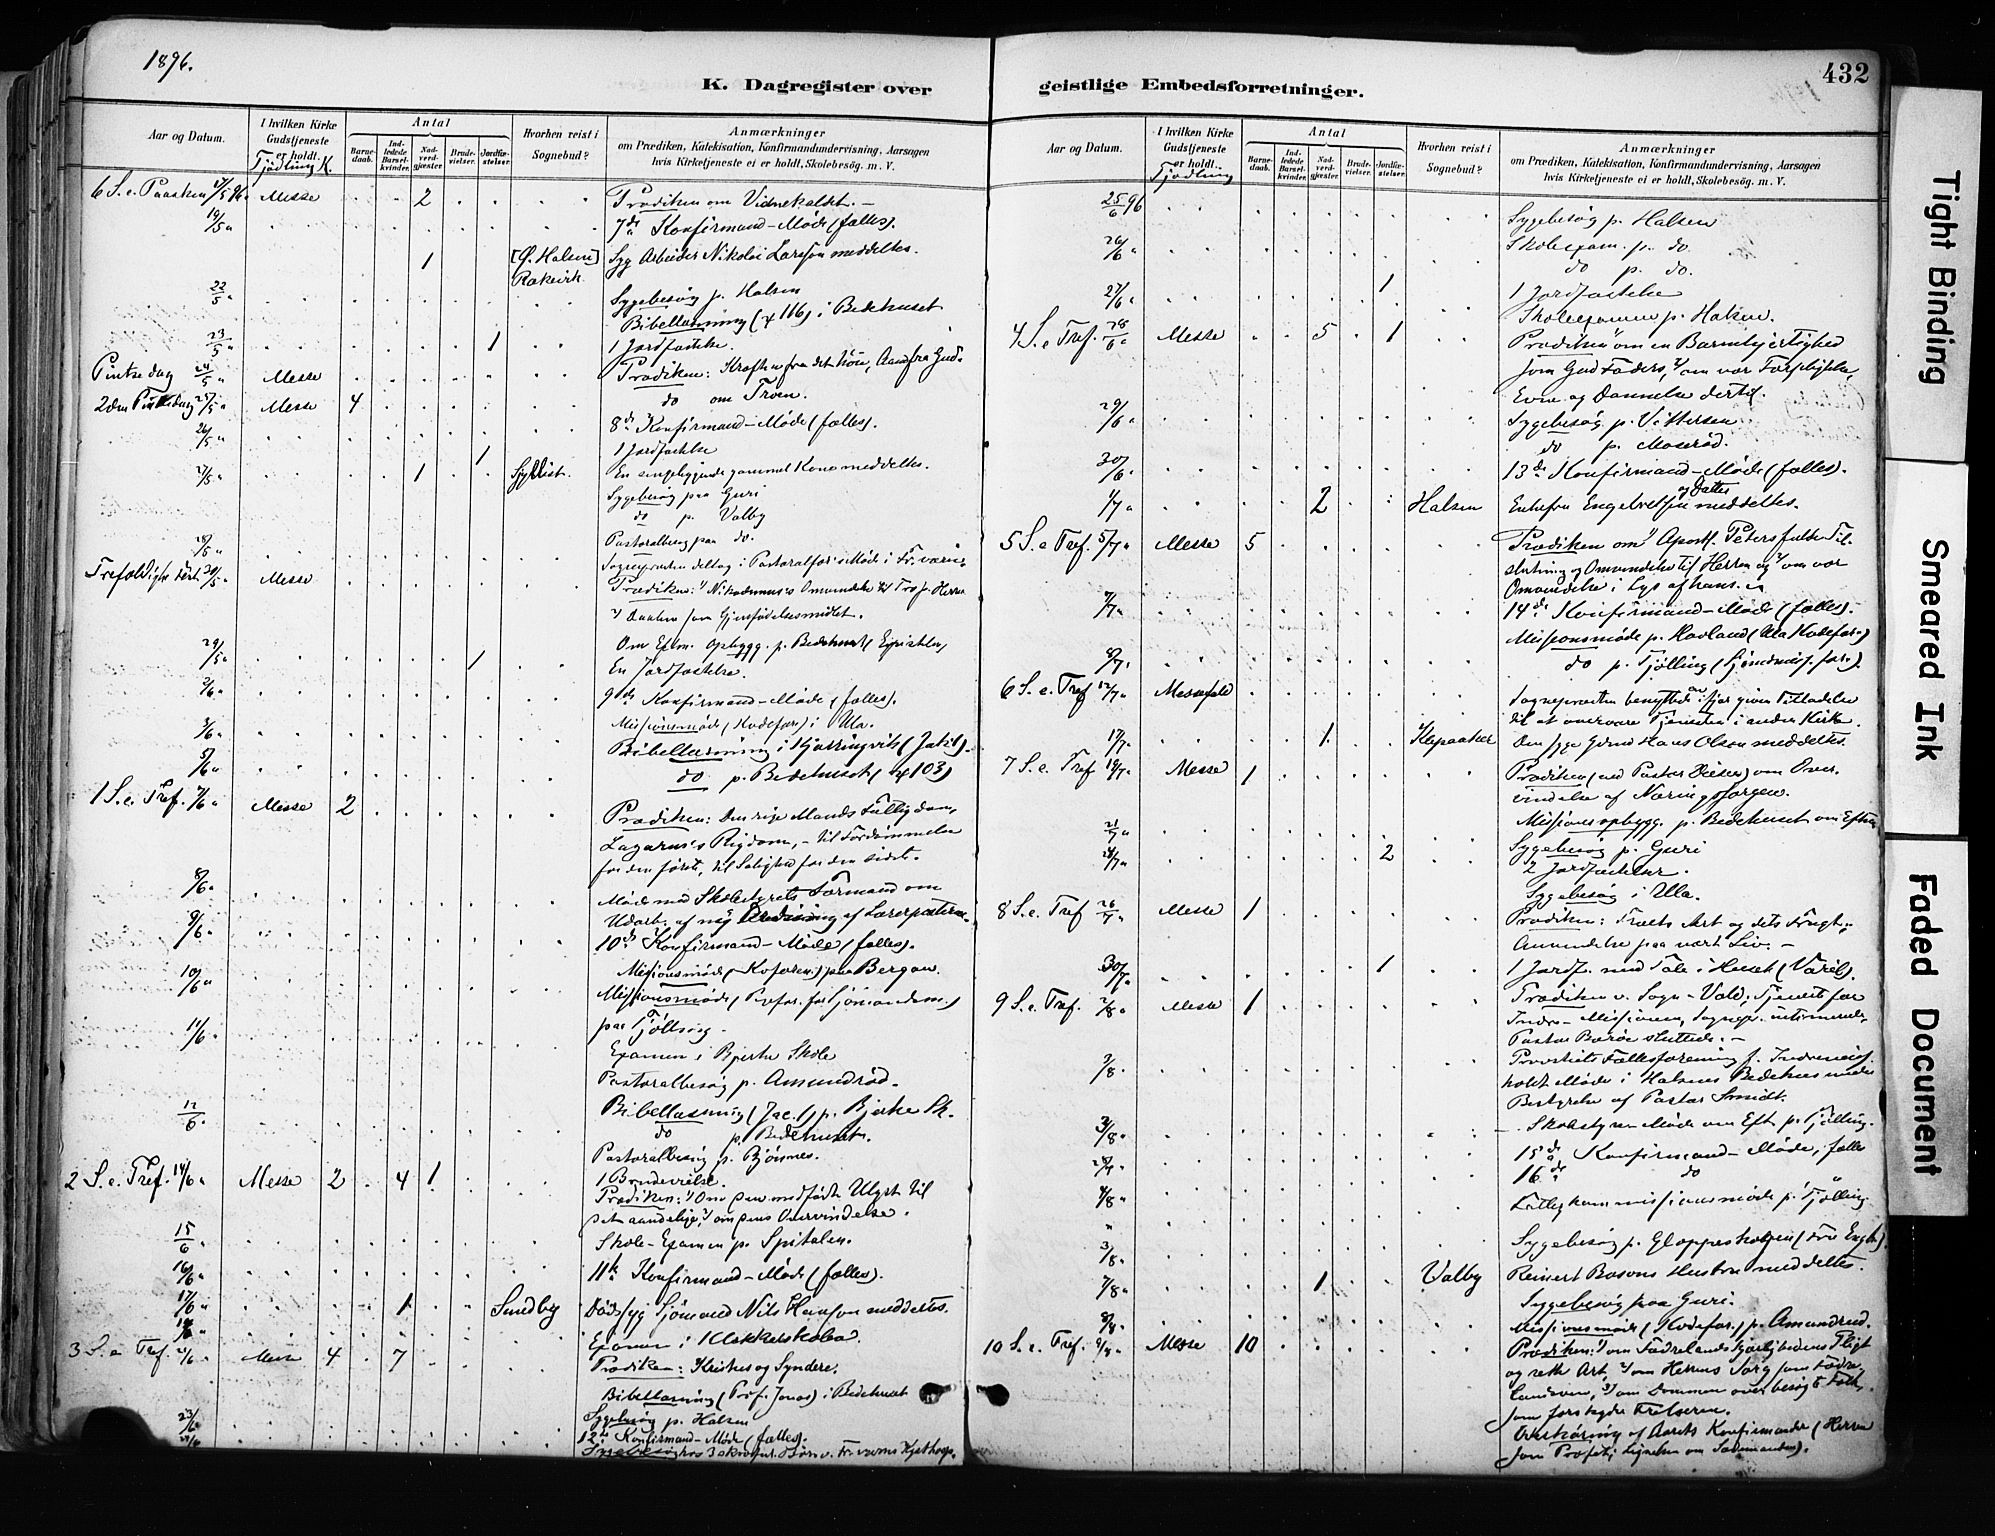 1896.
K. Dagregister over
Aar og Datum.
I hvilken Kirke Gudstjeneste er holdt.
Tjødling K.
Antal
Barnedaab.
Indledede Barselkvinder.
Nadverdgjæster.
Brudevielser.
Jordfæstelser.
Hvorhen reist i Sognebud?
Anmærkninger
om Prædiken, Katekisation, Konfirmandundervisning, Aarsagen
hvis Kirketjeneste ei er holdt, Skolebesøg. m. V.
6 S. e. Paasken 17/5 96. Messe 2 Prædiken om Vidnekaldet. –
19/5 " 7de Konfirmand-Møde (fælles).
1 [Ø. Halsen] Rakevik Syg Arbeider Nikolai Larsson meddeltes.
22/5 " Sygebesøg p. Halsen
Bibellæsning (ψ 116) i Bedehuset
23/5 " 1 1 Jordfæstelse.
Pintsedag 24/5 " Messe Prædiken: Kraften fra det høie, Aand fra Gud.
2den Pintsedag 25/5 " Messe 4 do om Troen.
26/5 " 8de Konfirmand-Møde (fælles).
1 1 Jordfæstelse
27/5 " 1 En sengeliggende gammel Kone meddeltes.
Sygebesøg paa Guri
do p. Valby
28/5 " Pastoralbesøg paa do.
Sognepræsten deltog i Pastoralfor's Møde i Fr.værn.
Messe Prædiken: 1) Nikodemus's Omvendelse til Tro p. Herren
2) Daaben som Gjenfødelsesmidlet.
29/5 " 1 En Jordfæstelse.
2/6 " 9de Konfirmand-Møde (fælles).
3/6 " Missionsmøde (Kvdefor.) i Ula.
5/6 " Bibellæsning i Kjærringvik (Jak. 1).
do p. Bedehuset (ψ 103)
1 S. e. Tref. 7/6 " Messe 2 Prædiken: Den rige Mands Fattigdom,
Lazarus's Rigdom, – til Fordømmelse
for den første, til Salighed for den sidste.
8/6 " Møde med Skolestyrets Formand om
9/6 " 10de Konfirmand-Møde (fælles).
10/6 " paa Bergan.
paa Tjølling.
11/6 " Examen i Bjerke Skole
Pastoralbesøg p. Amundrød.
12/6 " Bibellæsning (Jac. 1) p. Bjerke Sk.
do p. Bedehuset.
Pastoralbesøg p. Bjønnes.
2 S. e. Tref. 14/6 " Messe 2 4 1 1 Brudevielse.
Prædiken: 1) Om den medfødte Ulyst til
det aandelige, 2) om dens Overvindelse.
15/6 " Skole-Examen p. Spitalen.
16/6 " 11te Konfirmand-Møde (fælles).
17/6 " 1 Sundby Dødssyg Sjømand Nils Hansson meddeltes.
Examen i Klokkerskolen.
3 S. e. Tref. 21/6 " Messe 4 7 Prædiken: Kristus og Syndere.
Bibellæsning (Prof. Jonas) i Bedehuset
23/6 " Sygebesøg p. Halsen
12te Konfirmand-Møde (fælles).
432
geistlige Embedsforretninger.
Aar og Datum.
I hvilken Kirke Gudstjeneste er holdt.
Tjødling
Antal
Barnedaab.
Indledede Barselkvinder.
Nadverdgjæster.
Brudevielser.
Jordfæstelser.
Hvorhen reist i Sognebud?
Anmærkninger
om Prædiken, Katekisation, Konfirmandundervisning, Aarsagen
hvis Kirketjeneste ei er holdt, Skolebesøg. m. V.
25/6 96 Sygebesøg p. Halsen
26/6 " Skoleexam. p. do
do p. do.
27/6 " 1 1 Jordfæstelse
Skoleexamen p. Halsen.
4 S. e. Tref. 28/6 " Messe 5 1 Prædiken 1) om en Barmhjertighed
som Gud Faders, 2) om vor Forpligtelse,
Evne og Dannelse dertil.
29/6 " Sygebesøg p. Vittersen
do p. Moserød.
30/6 " 13de Konfirmand-Møde (fælles).
1/7 " 2 Halsen Enkefru Engebretsen og Datter meddeltes.
5 S. e. Tref. 5/7 " Messe 5 Prædiken om 1) Apostl. Peters fulde Tilslutning
og Omvendelse til Herren og 2) om vor
Omvendelse i Lys af hans.
7/7 " 14de Konfirmand-Møde (fælles).
Missionsmøde p. Havland (Ula Kvdefor.)
8/7 " do p. Tjølling (Sjømdmiss. for.).
6 S. e. Tref 12/7 " Messefald Sognepræsten benyttede en i fjor given Tilladelse
til at overvære Tjenesten i anden Kirke.
17/7 " 1 Klepaaker Den syge Gdmd Hans Olsen meddeltes.
7 S. e. Tref 19/7 " Messe 1 om Overvindelse
af Næringssorgen.
21/7 " Missionsopbygg. p. Bedehuset om Eftm.
Sygebesøg p. Guri
2 2 Jordfæstelser.
Sygebesøg i Ula.
8 S. e. Tref 26/7 " Messe 1 Prædiken: Træets Art og dets Frugt,
Anvendelse paa vort Liv. –
30/7 " 1 1 Jordf. med Tale i Huset (Varil).
9 S. e. Tref. 2/8 " Messe 1
2/8 " Provstiets Fællesforening f. Indremiss.
holdt Møde i Halsens Bedehus under
Bestyrelse af Pastor Smidt.
3/8 " Skolestyre-Møde om Eft. p. Tjølling.
15de Konfirmand-Møde, fælles
16de do "
p. Tjølling.
Sygebesøg p.
7/8 " 1 Valby Reinert Basons Hustru meddeltes.
Sygebesøg paa Guri.
8/8 " Missionsmøde (Kvdefor.) p. Amundrød.
10 S. e. Tref. 9/8 " Messe 10 Prædiken: 1) om Fædrelandskjærlighedens Pligt
og rette Art, 2) om Herrens Sorg som Fædrelandsven,
3) om Dommen over besøgt Folk,
som forskyder Frelseren.
Overhøring af Aarets Konfirmander (Herren
som Profet, Lignelsen om Sædemanden).
Tight Binding
Smeared Ink
Faded Document